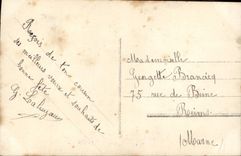 Reçois de ton cousin
ses meilleurs vœux et souhaits de
bonne fête
G.
Mademoiselle
Georgette
75 rue de
Reims
Marne